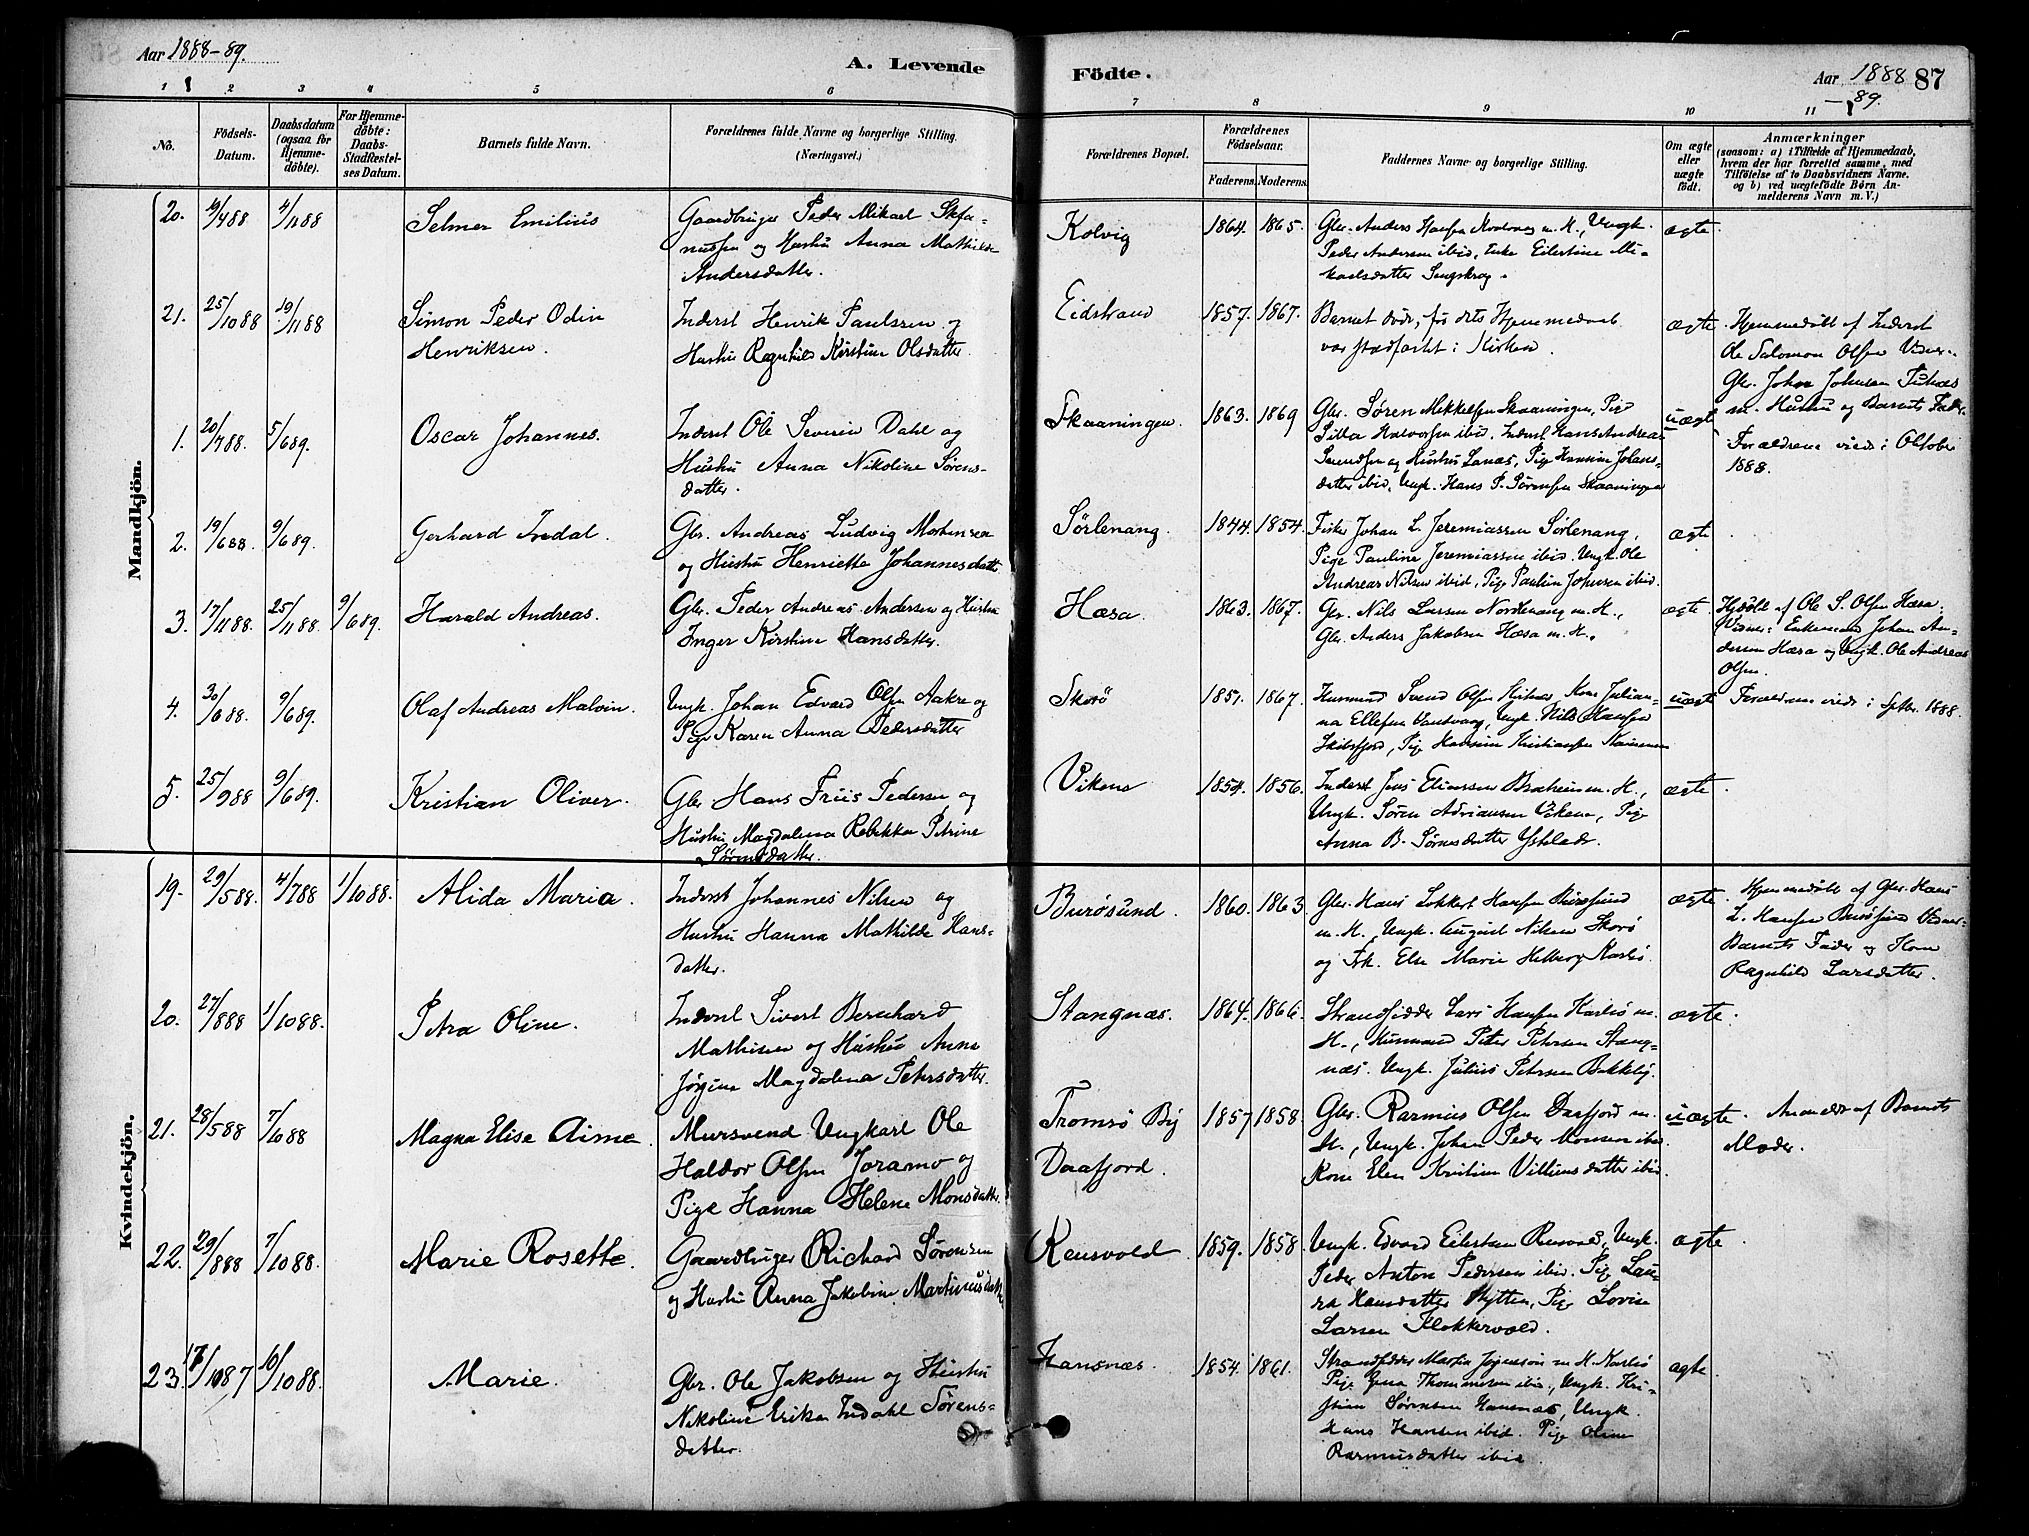 Aar 1888-89.
A. Levende
Födte.
Aar 1888
-89.
87
1 2 3 4 5 6 7 8 9 10 11
No.
Födsels-
Datum.
Daabsdatum
(ogsaa för
Hjemme-
döbte).
For Hjemme-
döbte:
Daabs-
Stadfæstel-
ses Datum.
Barnets fulde Navn.
Forældrenes fulde Navne og borgerlige Stilling.
(Næringsvei.)
Forældrenes Bopæl.
Forældrenes
Födselsaar.
Faderens. Moderens.
Faddernes Navne og borgerlige Stilling.
Om ægte
eller
uægte
født.
Anmærkninger
(saasom: a) i Tilfælde af Hjemmedaab,
hvem der har forrettet samme, med
Tilföielse af to Daabsvidners Navne,
og b) ved uægtefödte Börn An-
melderens Navn m. V.)
Mandkjön.
20. 4/1188 Selmer Emilius
Gaardbruger Peder Mikael
og Hustru Anna Mathilde
Andersdatter.
Kolvig 1864. 1865.
Gbr. Anders Hansen m. H., Ungk.
Peder Andersen ibid, Enke Eilertine Mi-
kaelsdatter
ægte.
21. 25/1088 19/1188 Simon Peder Odin
Henriksen.
Inderst Henrik Paulssen og
Hustru Ragnhild Kirstine Olsdatter.
Eidstrand 1857. 1867.
Barnet døde, før dets Hjemmedaab
var stadfæstet i Kirken.
ægte.
Hjemmedøbt af Inderst
Ole Salomon Olsen Vidner:
Gbr. Johan Johnsen
m. Hustru og Barnets Fader.
1. 20/788 5/689. Oscar Johannes.
Inderst Ole Severin Dahl og
Hustru Anna Nikoline Sørens-
datter.
Skaaningen. 1863. 1869
Gbr. Søren Mikkelsen Skaaningen, Pige
Halvorsen ibid, Inderst Hans Andreas
og Hustru Lanæs, Pige Johans-
datter ibid, Ungk. Hans P. Sørensen Skaaningen
uægte
Forældrene viede i Oktober
1888.
2. 19/688. 9/689. Gerhard Indal.
Gbr. Andreas Ludvig Mortensen
og Hustru Henriette Johannesdatter
Sørlenang. 1844. 1854.
Fisker Johan L. Jeremiassen Sørlenang,
Pige Pauline Jeremiassen ibid. Ungk. Ole
Andreas Nilsen ibid, Pige Pauline Johnsen ibid.
ægte
3. 17/1188. 25/1188. 9/689. Harald Andreas.
Gbr. Peder Andreas Andersen og Hustru
Inger Kirstine Hansdatter.
Hæsa. 1863. 1867.
Gbr. Nils Larsen Nordlenang m. H.,
Gbr. Anders Jakobsen Hæsa m. H.
ægte
Hjdøbt af Ole S. Olsen Hæsa.
Vidner: Enkemand Johan An-
dersen Hæsa og Ungk. Ole Andreas
Olsen.
4. 30/688. 9/689. Olaf Andreas Malvin.
Ungk. Johan Edvard Olsen Aakre og
Pige Karen Anna Pedersdatter
Skorö 1851. 1867.
Husmand Svend Olsen Kone Julian-
na Ellefsen Ungk. Nils Hansen
Skibsfjord, Pige Kristiansen
uægte
Forældrene viede i Septbr. 1888.
5. 25/988 9/689. Kristian Oliver.
Gbr Hans Friis Pedersen og
Hustru Magdalena Rebekka Petrine
Sørensdatter.
Vikens 1854. 1856.
Inderst Jens Eliassen m. H.,
Ungk. Søren Adriansen Vikens, Pige
Anna B. Sørensdatter
ægte.
Kvindekjön.
19. 29/588. 4/788 1/1088. Alida Maria.
Inderst Johannes Nilsen og
Hustru Hanna Mathilde Hans-
datter.
Burøsund. 1860. 1863
Gbr. Hans Lokkert Hansen Burøsund
m. H., Ungk. August Nilsen Skorö
og Frk. Else Marie Helberg Karlsö.
ægte.
Hjemmedøbt af Gbr. Hans
L. Hansen Burøsund Vidner:
Barnets Fader og Kone
Ragnhild Larsdatter.
20. 27/888 1/1088. Petra Oline.
Inderst Sivert Bernhard
Mathisen og Hustru Anna
Jørgine Magdalena Petersdatter.
Stangnæs. 1864. 1866.
Strandsidder Lars Hansen Karlsö m.
H., Husmand Peter Petersen Stang-
næs. Ungk. Julius Petersen Bakkeby.
ægte.
21. 28/588 7/1088 Magna Elise Aime.
Mursvend Ungkarl Ole
Haldor Olsen Joramo og
Pige Hanna Helene Monsdatter.
Tromsø By
Daafjord. 1857 1858.
Gbr. Rasmus Olsen Daafjord m.
H., Ungk. Johan Peder Monsen ibid.
Kone Elen Kristine Villumsdatter ibid.
uægte.
Anmeldt af Barnets
Moder.
22. 29/888 7/1088. Marie Rosette.
Gaardbruger Richard Sørensen
og Hustru Anna Jakobine Martinusdatter
Reinsvold 1859. 1858.
Ungk. Edvard Eilertsen Ungk.
Peder Anton Pedersen ibid. Pige Lau-
ra Hansdatter Hytten, Pige Lovise
Larsen Klokkervold.
ægte
23. 17/1087 10/1088. Marie.
Gbr. Ole Jakobsen og Hustru
Nikoline Erika Indahl Sørens-
datter.
Hansnæs. 1854. 1861.
Strandsidder Martin Jørgensen m H. Karlsö
Pige Jena Thommesen ibid., Ungk. Kri-
stian Sørensen Hansnæs, Ungk.
Hans Hansen ibid. Pige Oline
Rasmusdatter ibid
ægte.